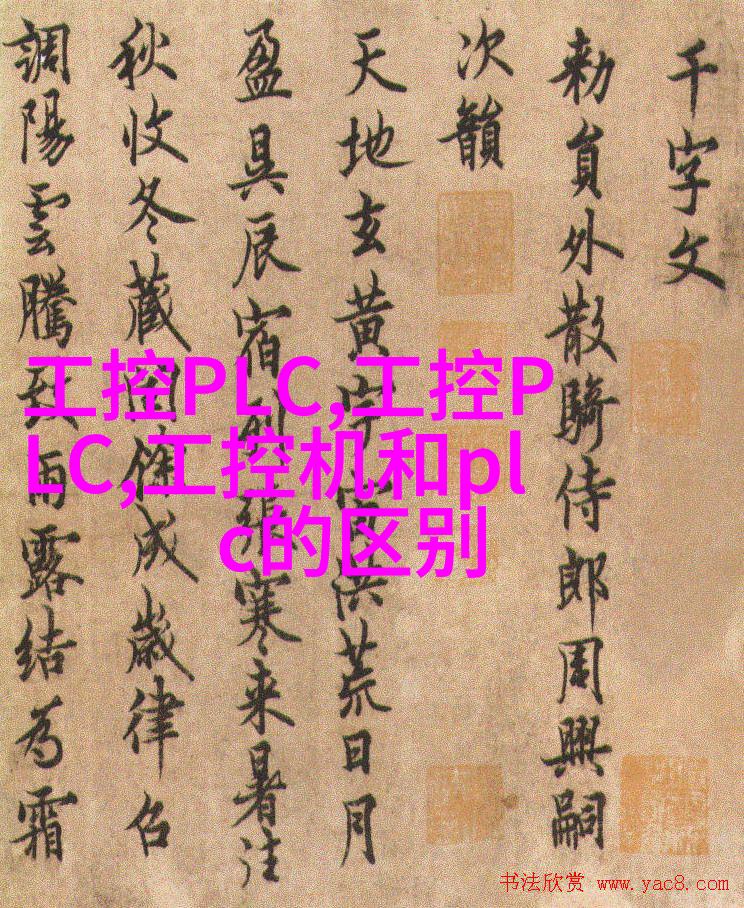 千字文
勅員外散騎侍郎周興嗣
次韻
天地玄黄宇宙洪荒日月
盈昃辰宿列張寒来暑往
秋收冬蔵閏餘成歲律召
調陽雲騰致雨露結為霜
工控PLC,工控P
LC,工控机和pl
c的区别
书法欣赏 www.yac8.com